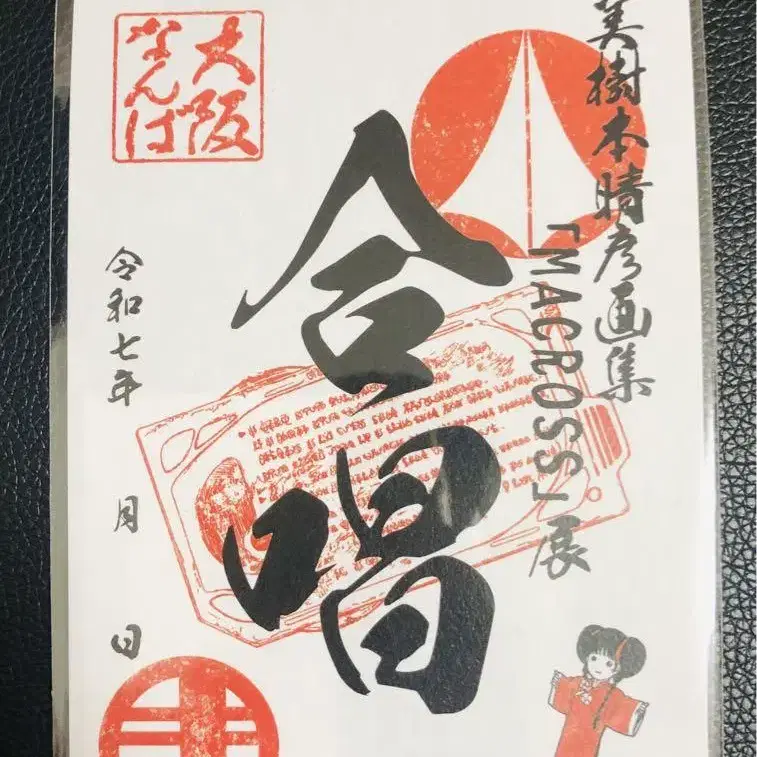 美樹本晴彦画集
「MACROSS」展
合唱
大阪
なんば
令和七年
月
日